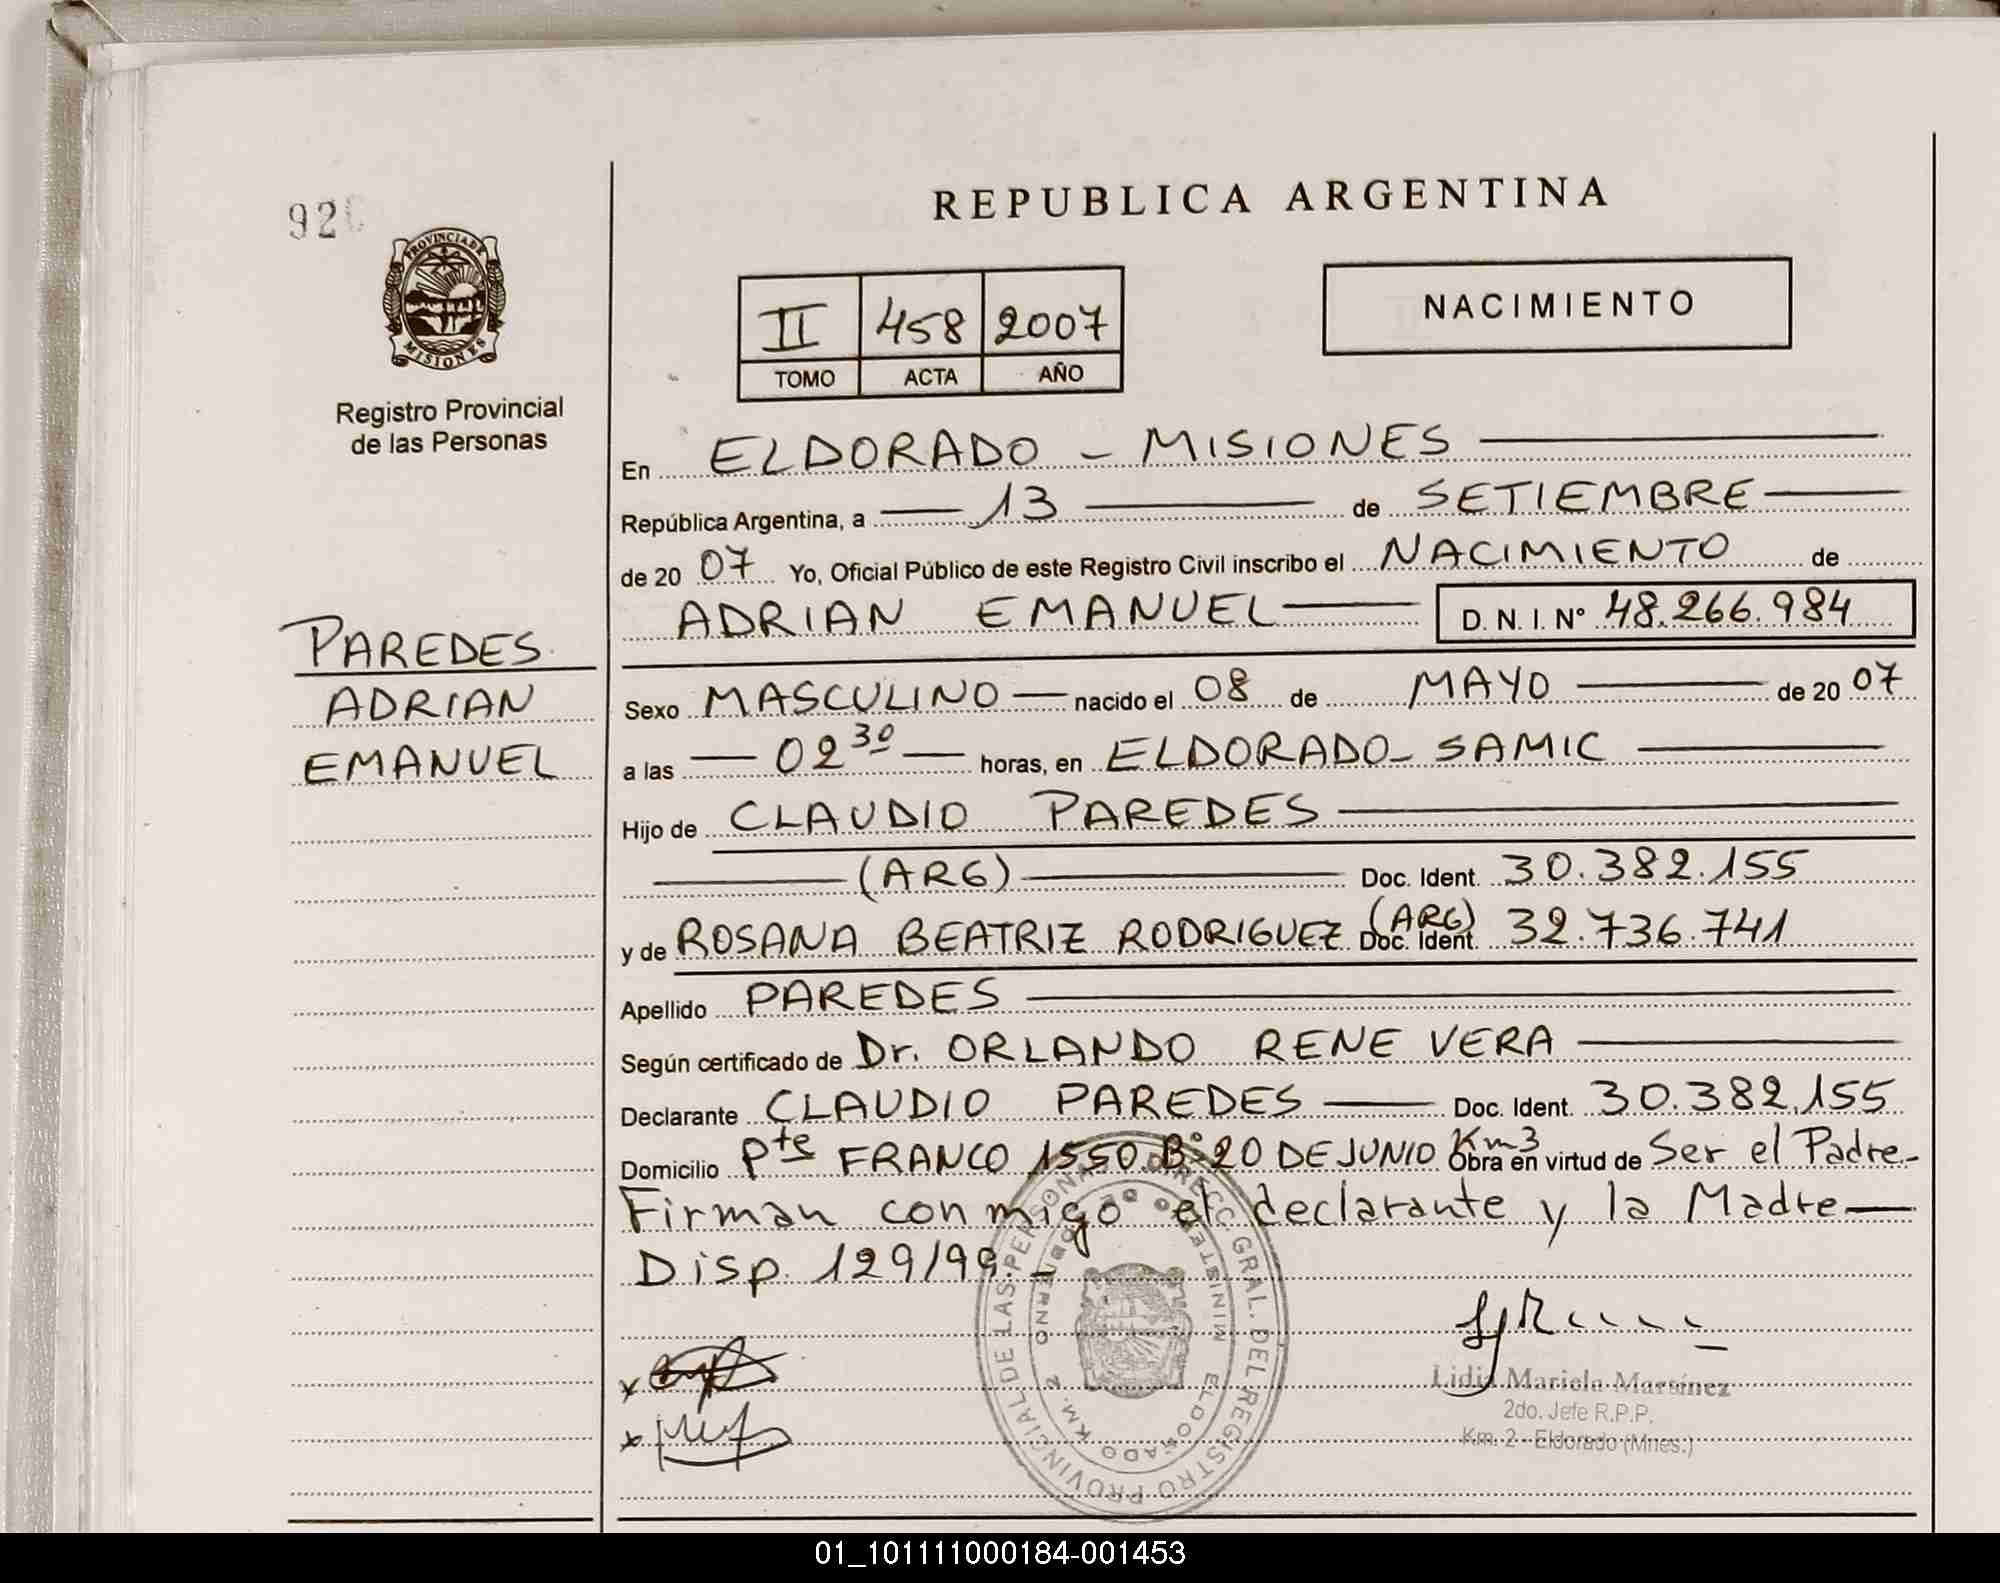 92
PROVINCIA DE
MISIONES
Registro Provincial
de las Personas
PAREDES
ADRIAN
EMANUEL
REPUBLICA ARGENTINA
II 458 2007
TOMO ACTA AÑO
NACIMIENTO
En ELDORADO - MISIONES
República Argentina, a 13 de SETIEMBRE
de 20 07 Yo, Oficial Público de este Registro Civil inscribo el NACIMIENTO de
ADRIAN EMANUEL D. N. I. Nº 48.266.984
Sexo MASCULINO nacido el 08 de MAYO de 20 07
a las 02 30 horas, en ELDORADO - SAMIC
Hijo de CLAUDIO PAREDES
(ARG) Doc. Ident. 30.382.155
y de ROSANA BEATRIZ RODRIGUEZ (ARG) Doc. Ident. 32.736.741
Apellido PAREDES
Según certificado de Dr. ORLANDO RENE VERA
Declarante CLAUDIO PAREDES Doc. Ident. 30.382.155
Domicilio Pte FRANCO 1550 Bº 20 DE JUNIO Km3 Obra en virtud de Ser el Padre-
Firman conmigo el declarante y la Madre
Disp. 129/99.-
DIRECC. GRAL. DEL REGISTRO PROVINCIAL DE LAS PERSONAS
MINISTERIO DE GOBIERNO
ELDORADO KM. 2
Lidia Mariela Marsinez
2do. Jefe R.P.P.
Km. 2 - Eldorado (Mnes.)
01_101111000184-001453